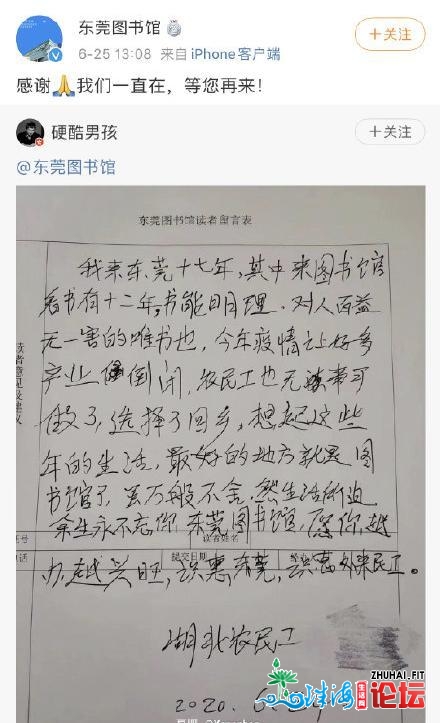 东莞图书馆
+关注
6-25 13:08 来自 iPhone客户端
感谢🙏我们一直在，等您再来！
硬酷男孩
+关注
@东莞图书馆
东莞图书馆读者留言表
我来东莞十七年，其中来图书馆
看书有十二年，书能明理，对人百益
无一害的唯书也，今年疫情让好多
产业倒闭，农民工也无事可
做了，选择了回乡，想起这些
年的生活，最好的地方就是图
书馆了，虽万般不舍，然生活所迫
余生永不忘你，东莞图书馆，愿你越
读者姓名
提交日期
办越兴旺，识惠东莞，识惠外来民工。
湖北农民工
2020.6.
ZHUHAI.FIT
珠海
生活网
论坛